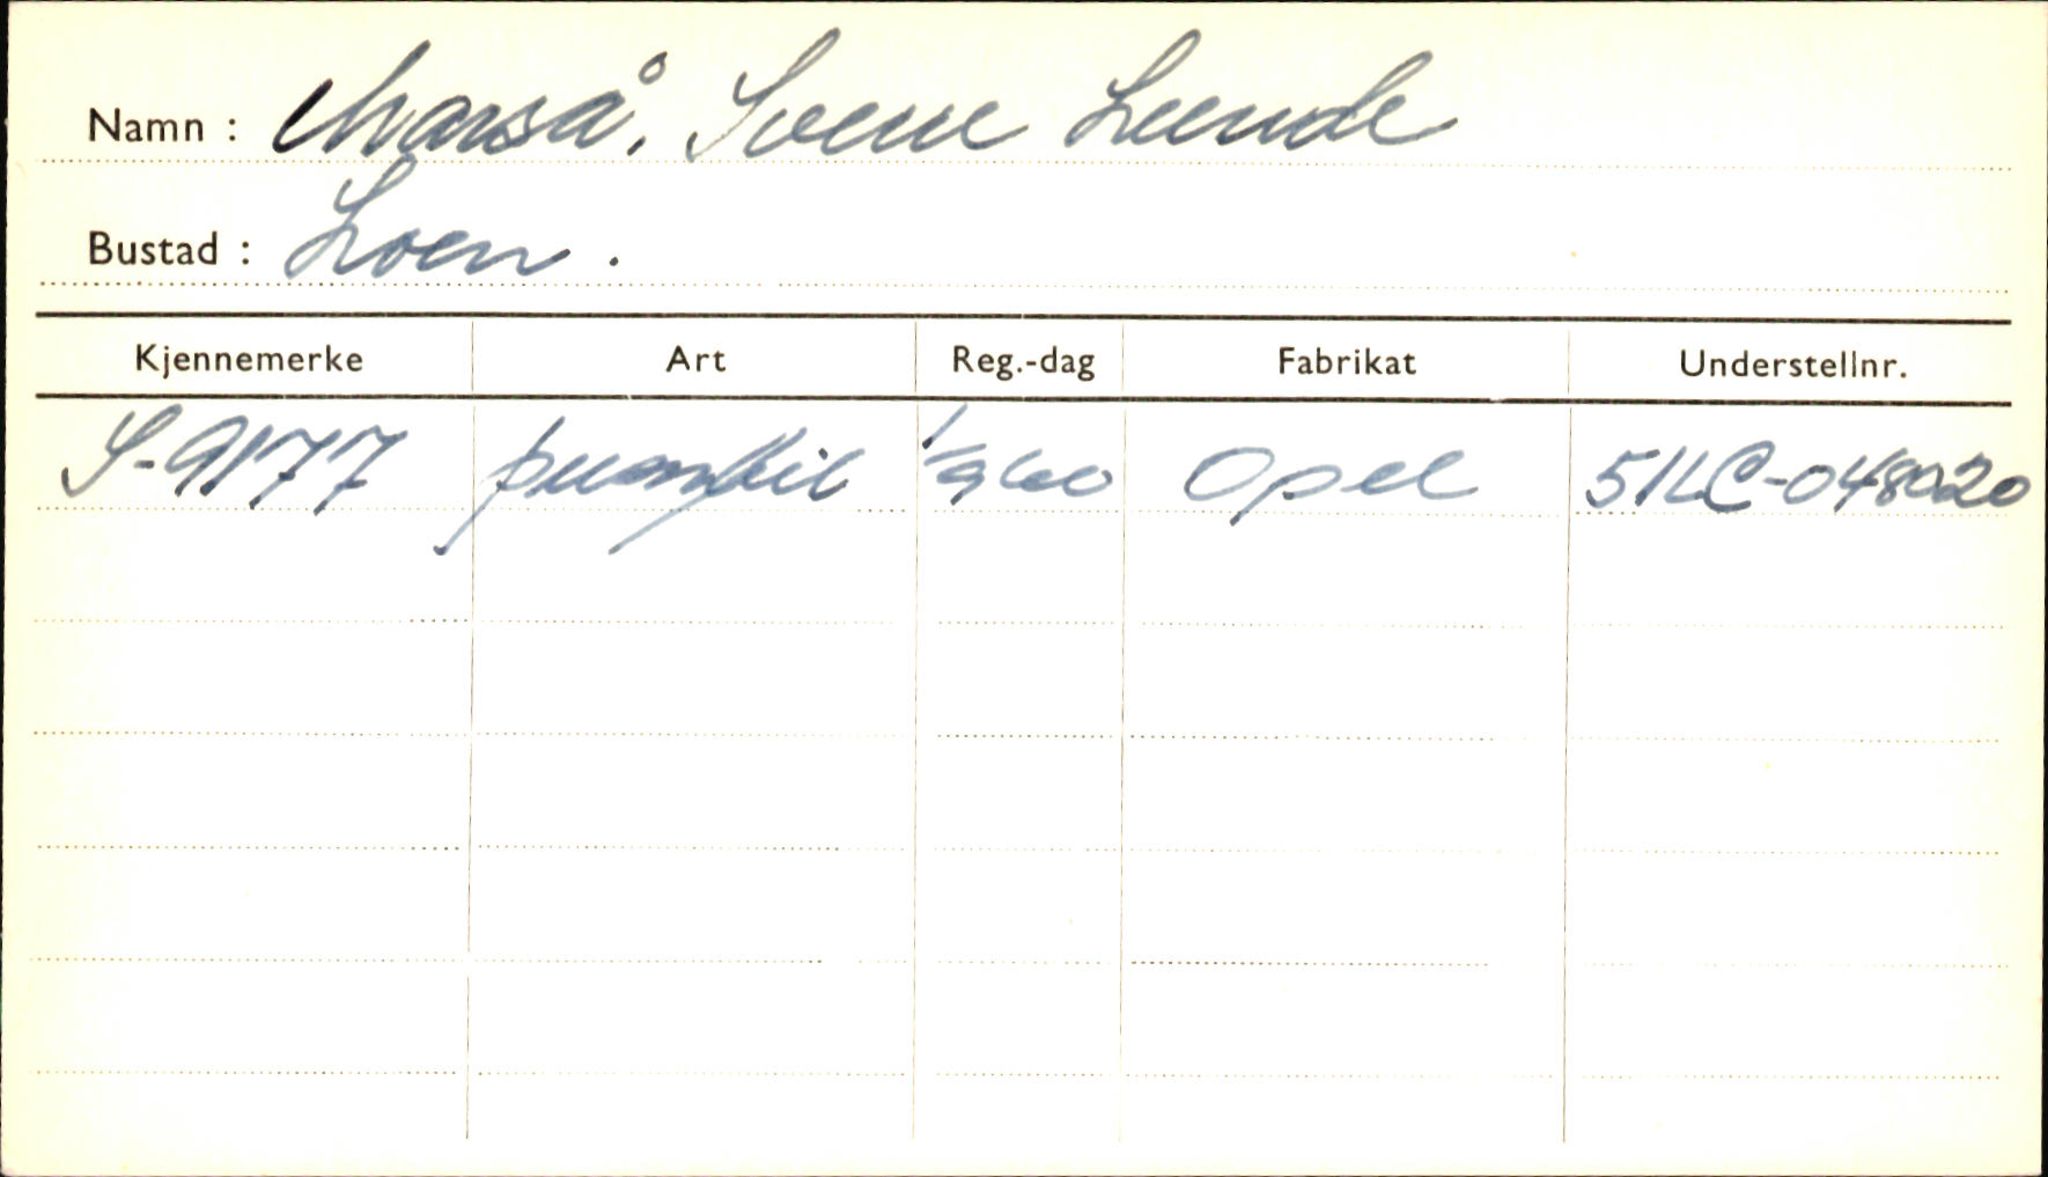 Namn : Marså, Svenn Lunde
Bustad : Loen .
Kjennemerke Art Reg.-dag Fabrikat Understellnr.
S-9177 personbil 1/9 60 Opel 51LC-048020